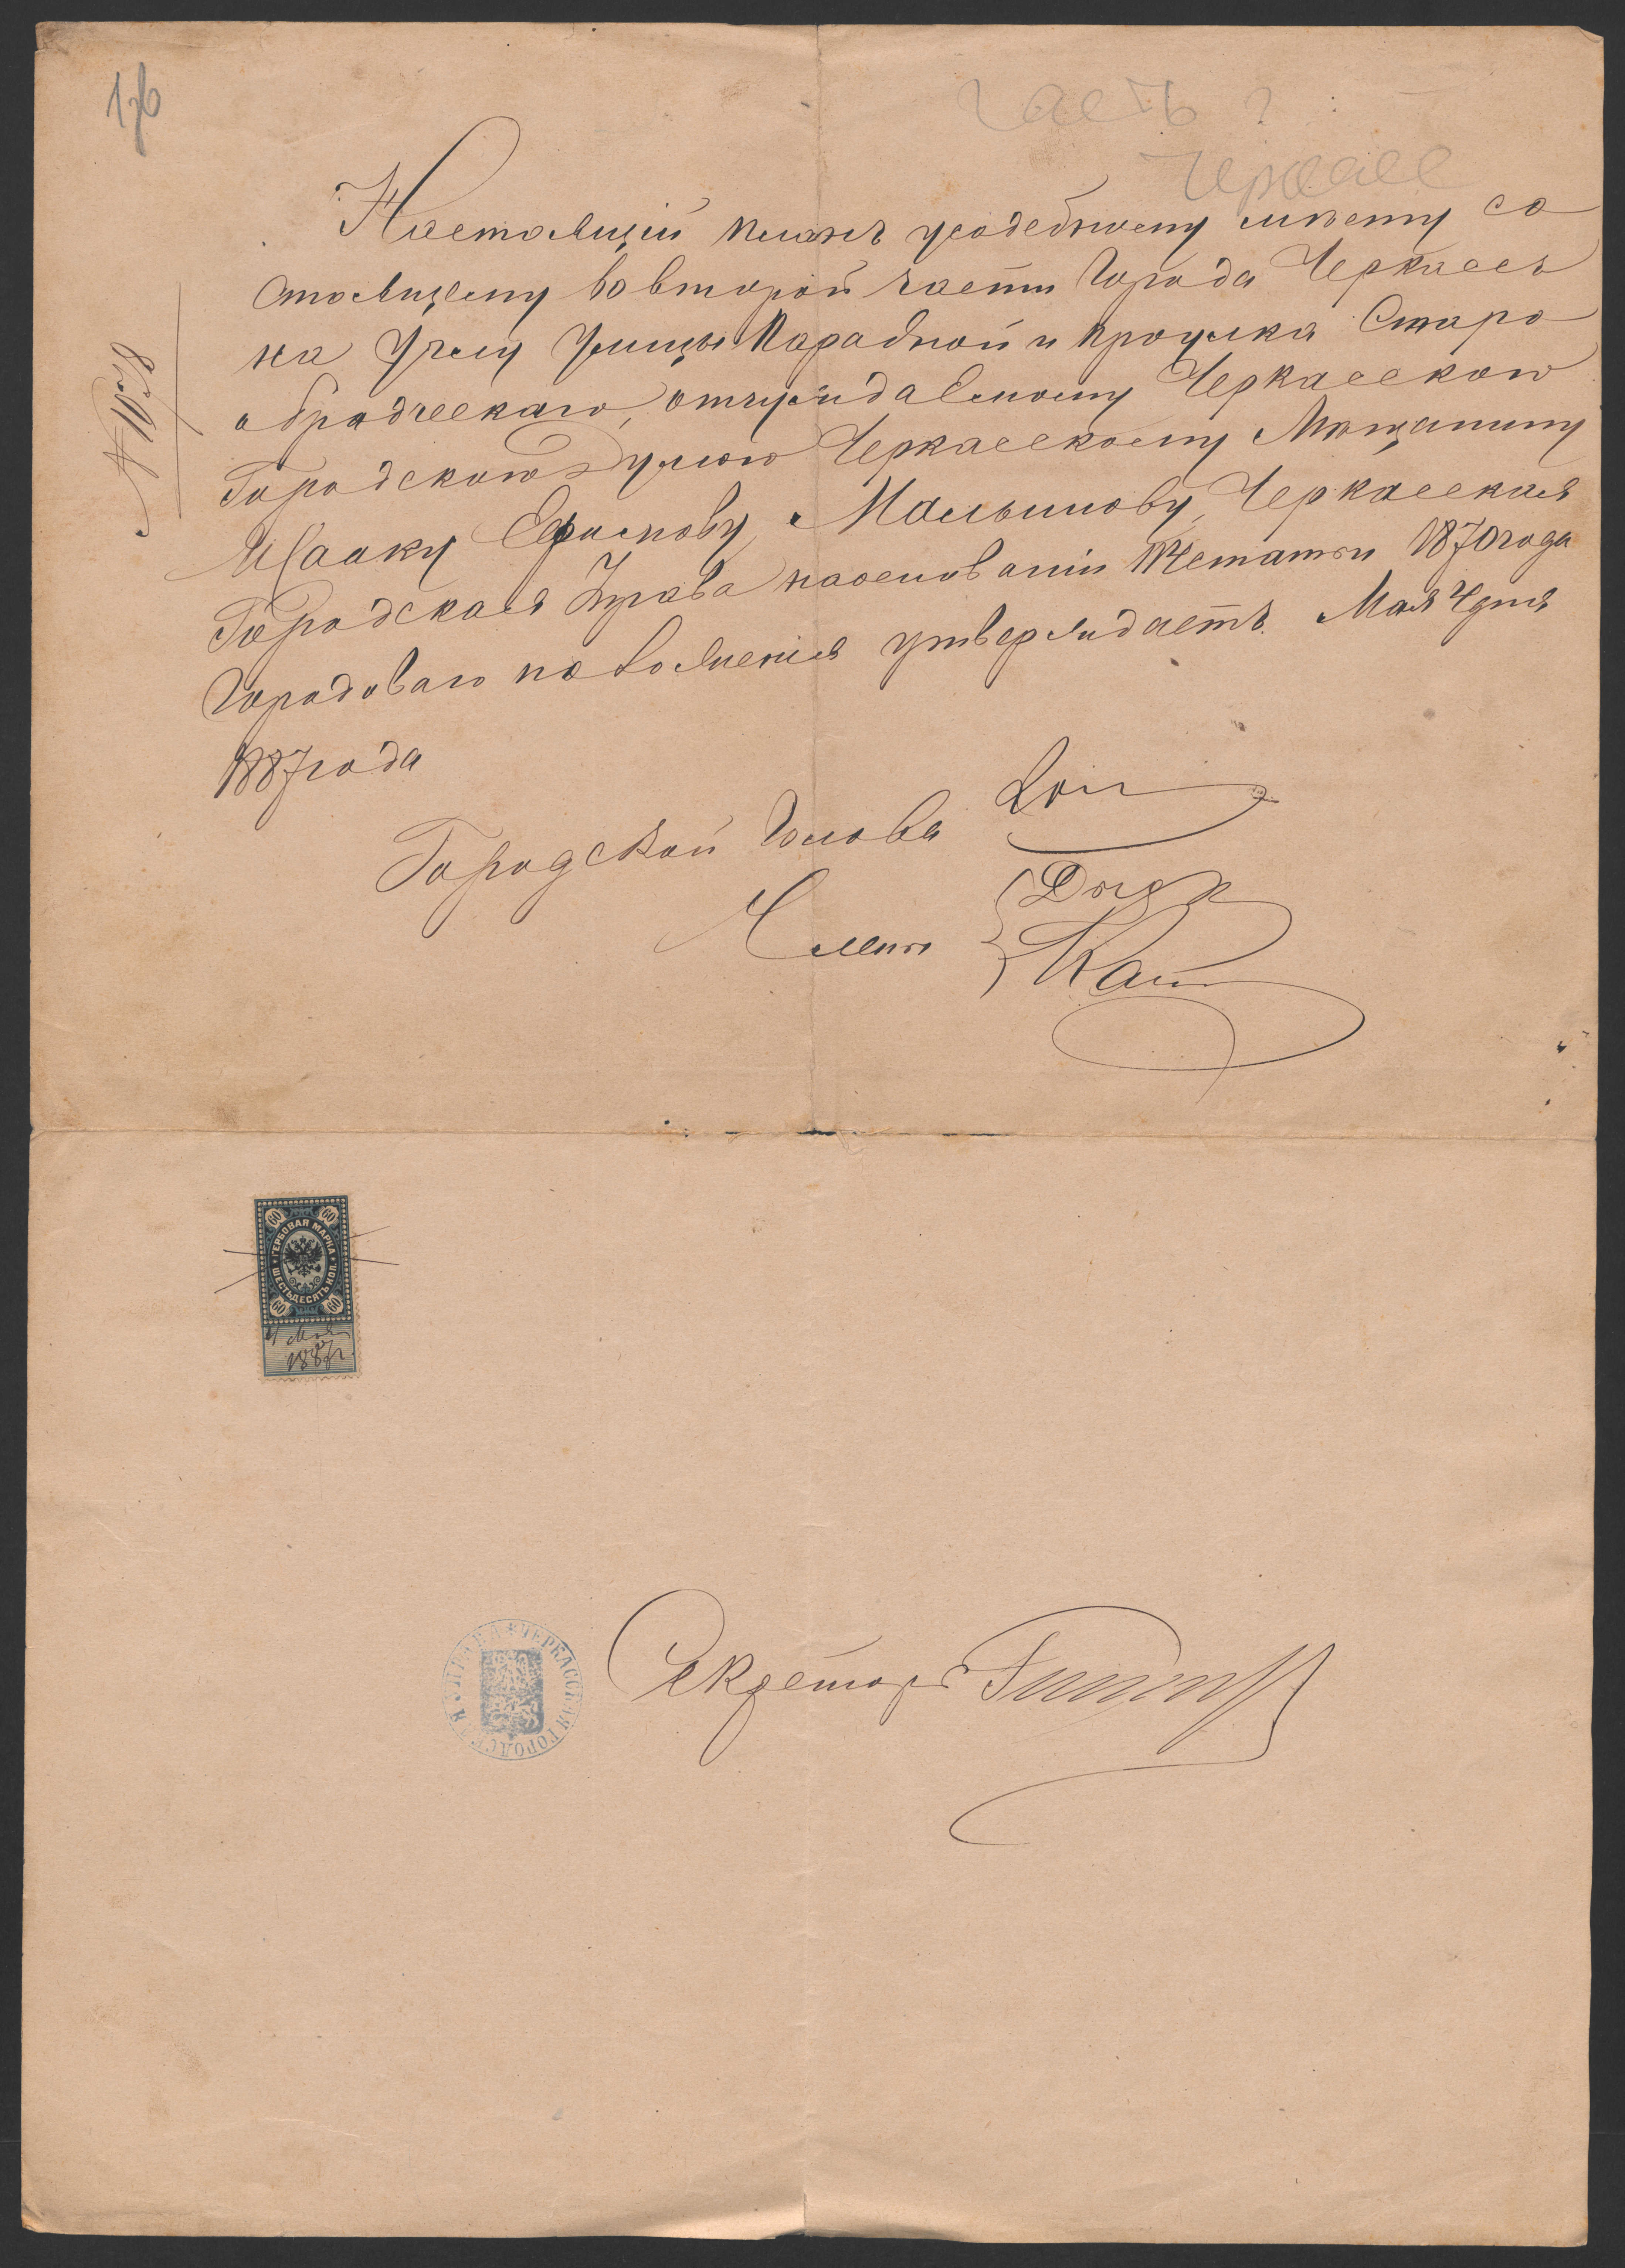 176
часть 2
Черкассъ
Настоящій планъ усадебному мѣсту со
стоящему во второй части города Черкассъ
на углу улицы Парадной и проулка Старо
обрядческаго, отчуждаемому Черкасскою
Городскою Думою Черкасскому Мѣщанину
Исааку Ефимову Малынову, Черкасская
Городская Управа наосновании 114 статьи 1870 года
Городоваго положения утверждаетъ. Мая 4 дня
1887 года
№ 1058
Городской Голова
Члены
60 60
ГЕРБОВАЯ МАРКА
ШЕСТЬДЕСЯТЪ КОП.
60 60
4 Мая
1887 г.
ЧЕРКАССКАЯ ГОРОДСКАЯ УПРАВА
Секретарь